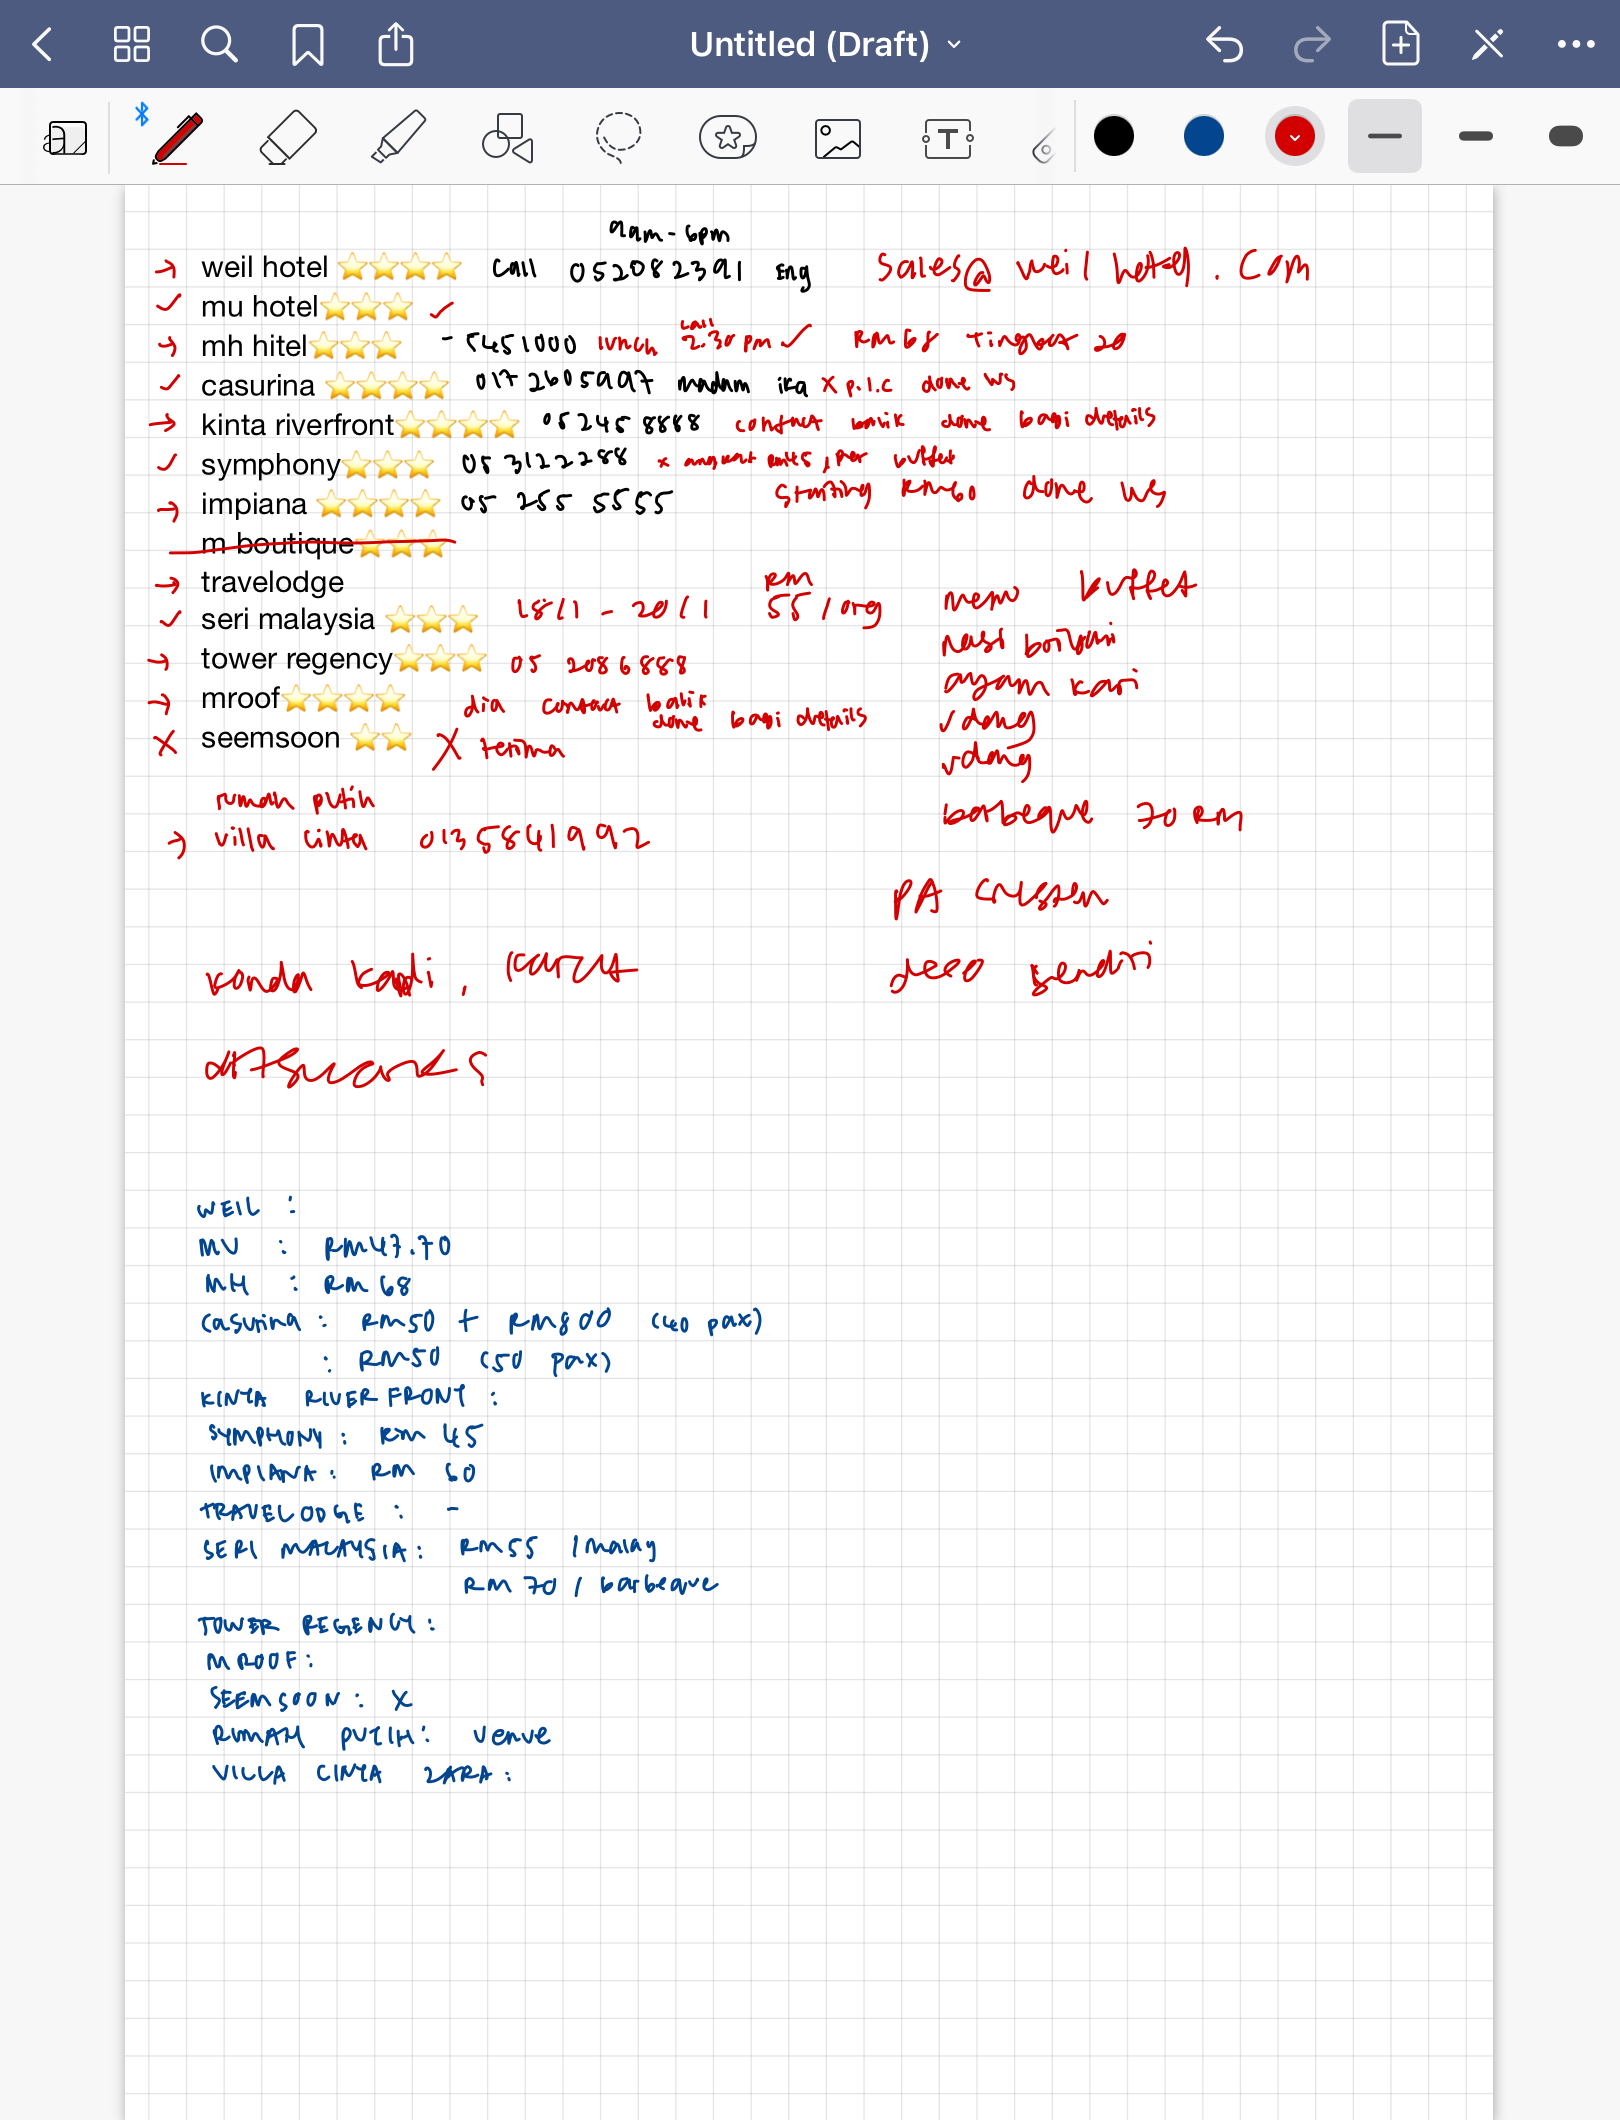 Untitled (Draft)
9am - 6pm
weil hotel ⭐⭐⭐⭐ call 052082391 Eng sales@weilhotel.com
mu hotel⭐⭐⭐
mh hitel⭐⭐⭐ - 5451000 lunch call 2.30 pm ✓ RM 68 20
casurina ⭐⭐⭐⭐ 017 2605997 madam ika X p.i.c done ws
kinta riverfront⭐⭐⭐⭐ 05 245 8888 contact balik done bagi details
symphony⭐⭐⭐ 05 3122288 x angkat RM45 / per buffet
impiana ⭐⭐⭐⭐ 05 255 5555 starting RM60 done ws
m boutique⭐⭐⭐
travelodge
seri malaysia ⭐⭐⭐ 18/1 - 20/1 RM 55 / org
tower regency⭐⭐⭐ 05 2086888
mroof⭐⭐⭐⭐ dia contact balik done bagi details
seemsoon ⭐⭐ X terima
menu buffet
nasi
ayam kari
udang
udang
barbeque 70 RM
rumah putih
villa cinta 0135841992
PA system
deco sendiri
WEIL :
MU : RM47.70
MH : RM 68
casurina : RM50 + RM800 (40 pax)
: RM50 (50 pax)
KINTA RIVERFRONT :
SYMPHONY : RM 45
IMPIANA : RM 60
TRAVELODGE : -
SERI MALAYSIA : RM55 / malay
RM 70 / barbeque
TOWER REGENCY :
MROOF :
SEEMSOON : X
RUMAH PUTIH : venue
VILLA CINTA ZARA :